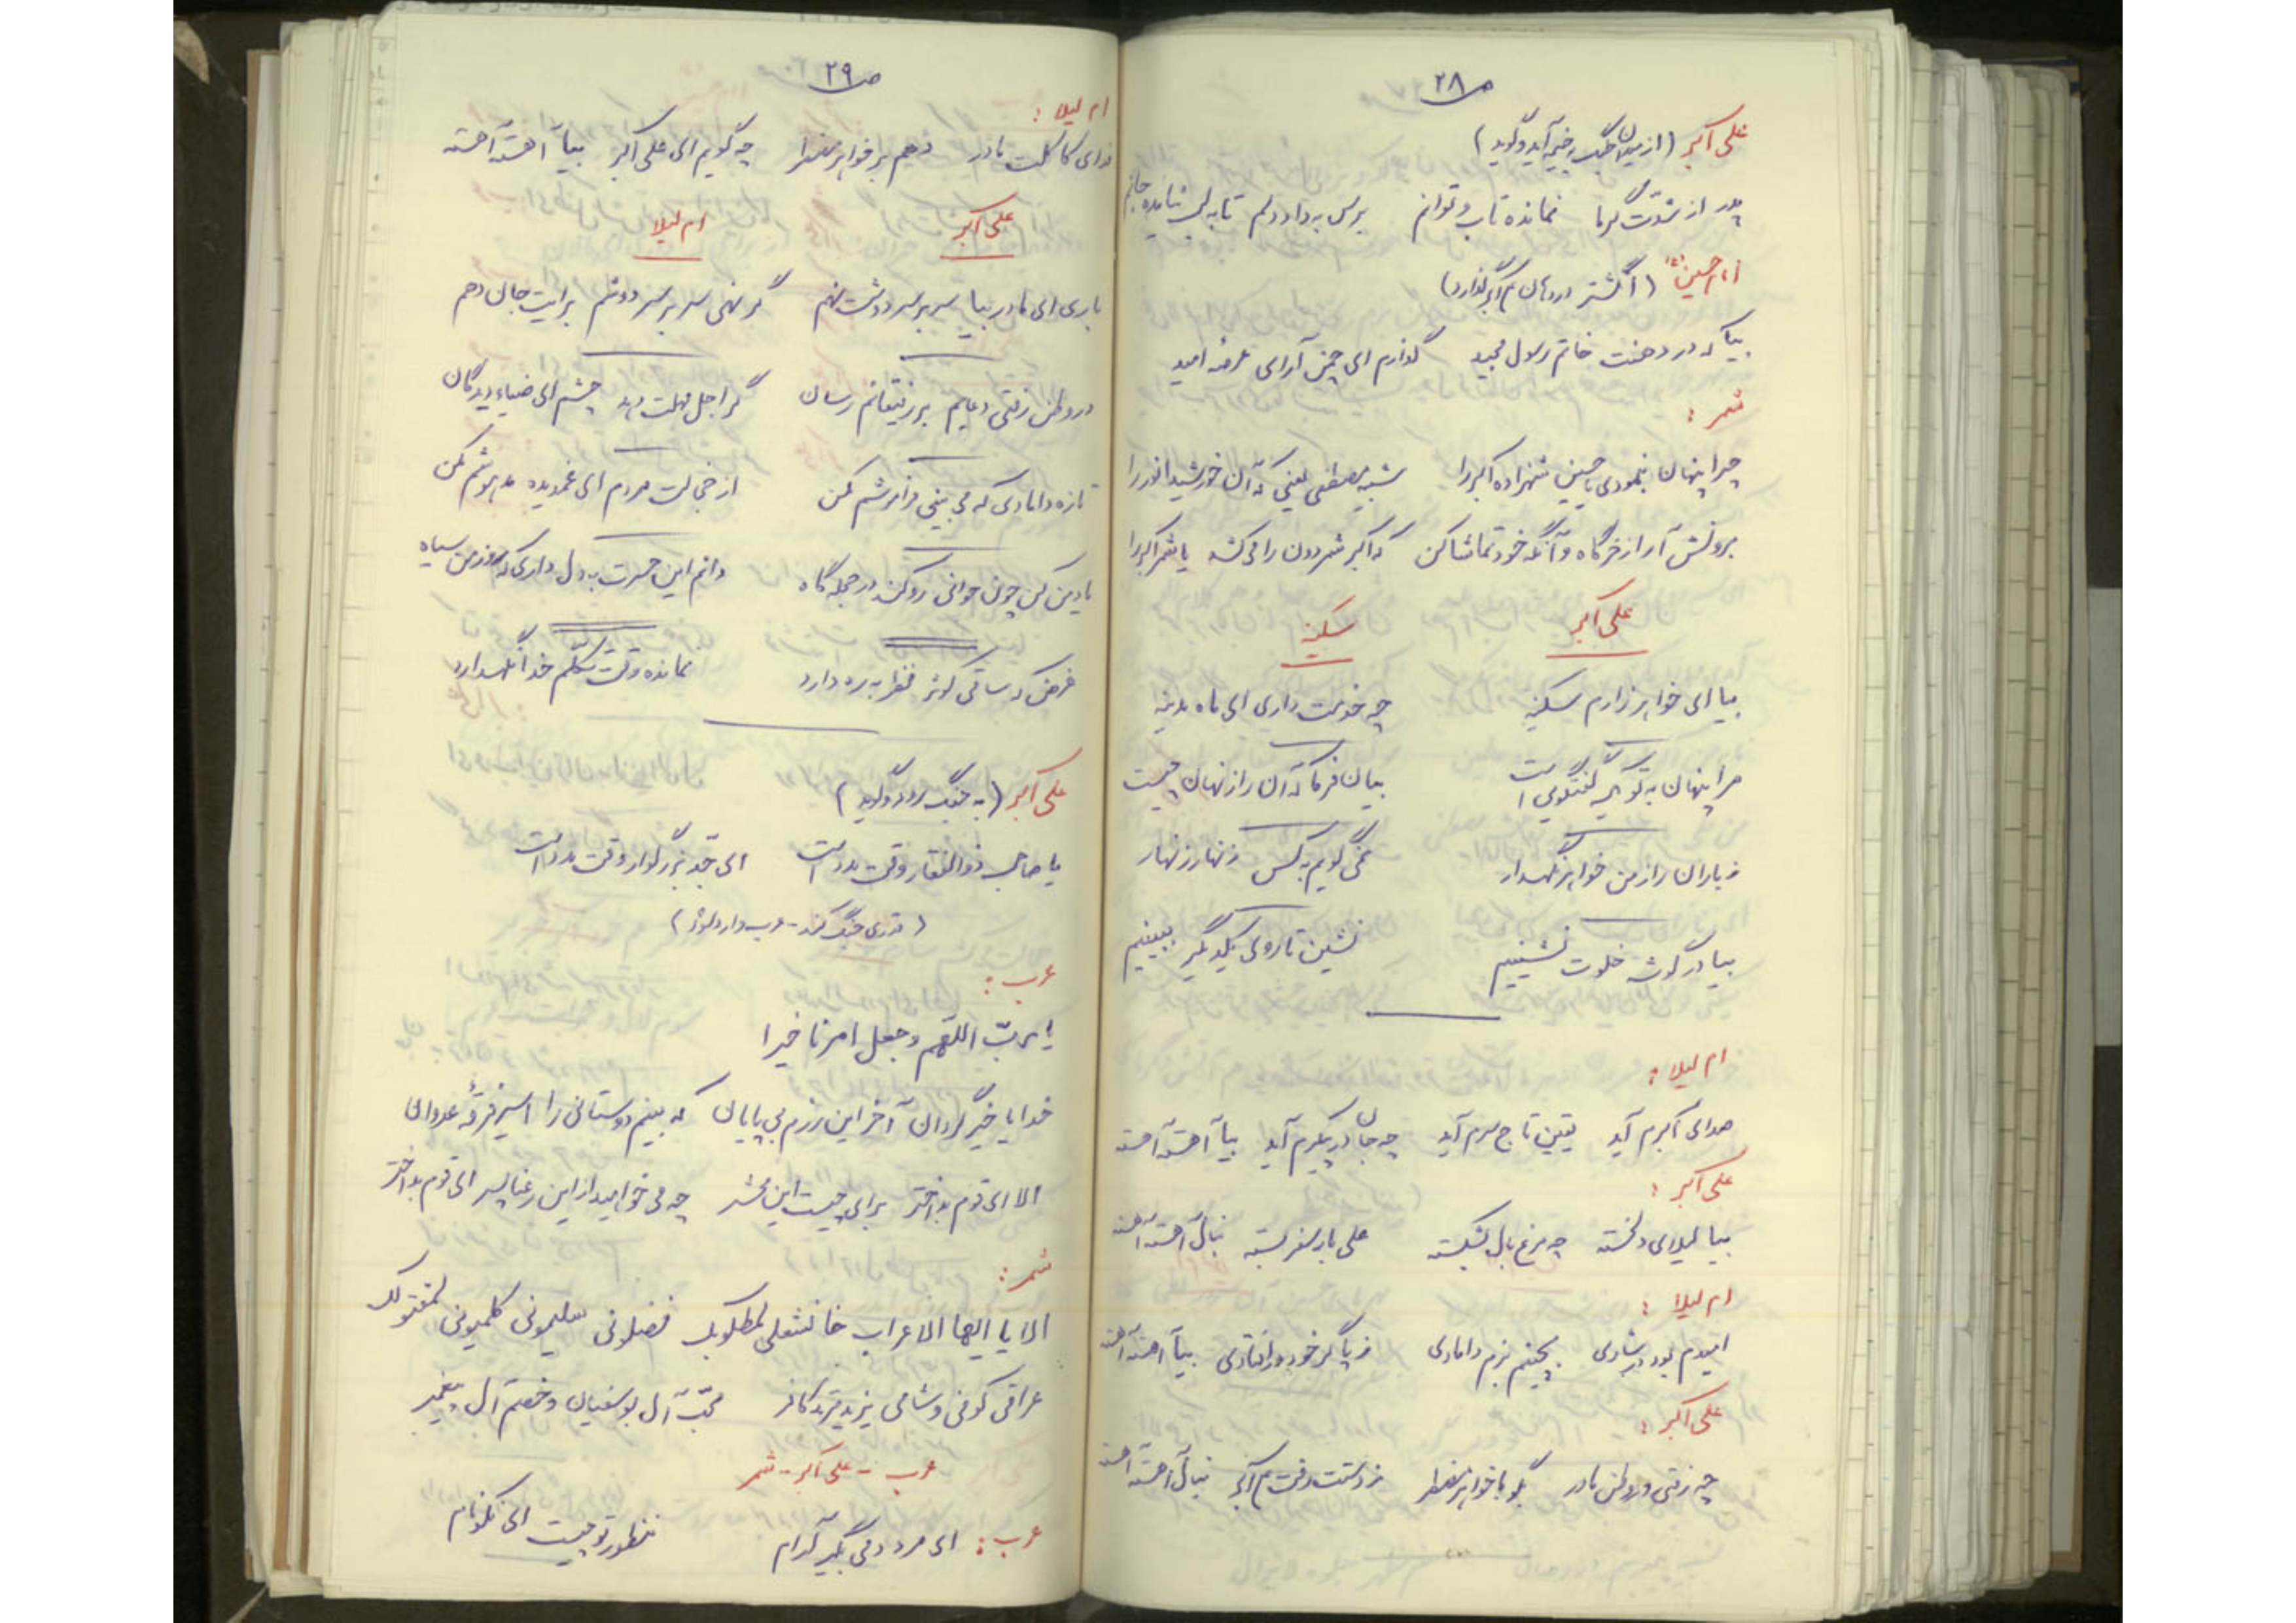 ص ۲۸
علی اکبر (از میدان جنگ به خیمه آید و گوید)
پدر از شدّت گرما نمانده تاب و توانم برس به داد دلم تا به لب نیامده جانم
امام حسین (ع) (انگشتر در دهان علی اکبر گذارد)
بیا که در دهنت خاتم رسول مجید گذارم ای چمن آرای عرصه امید
شمر :
چرا پنهان نمودی یا حسین شهزاده اکبر را شبیه مصطفی یعنی که آن خورشید انور را
برونش آر از خرگاه و آنگه خود تماشا کن که اکبر شمر دون را می کشد یا شمر اکبر را
علی اکبر سکینه
بیا ای خواهر زارم سکینه چه خدمت داری ای ماه مدینه
مرا پنهان به تو یک گفتگوی است بیان فرما که آن راز نهان چیست
ز یاران راز من خواهر نگهدار نمی گویم به کس زنهار زنهار
بیا در گوشه خلوت نشینیم نشین تا روی یکدیگر ببینیم
ام لیلا :
صدای اکبرم آید یقین تاج سرم آید چه جان در پیکرم آید بیا آهسته آهسته
علی اکبر :
بیا لیلای دلخسته چه مرغ بال بشکسته علی بار سفر بسته بنال آهسته آهسته
ام لیلا :
امیدم بود در شادی بچینم بزم دامادی ز پا آخر خود افتادی بیا آهسته آهسته
علی اکبر :
چه رفتی در وطن مادر بگو با خواهر مضطر ز دستت رفت علی اکبر بنال آهسته آهسته
ص ۲۹
ام لیلا :
فدای کاکلت مادر دهم بر خواهر مضطر چه گویم ای علی اکبر بیا آهسته آهسته
علی اکبر ام لیلا
باری ای مادر بیا سر بر سر دوشت نهم گر نهی سر بر سر دوشم برایت جان دهم
در وطن رفتی دعایم بر رفیقانم رسان گر اجل مهلت دهد چشم ای ضیاء دیدگان
تازه دامادی که می بینی فراموشم مکن از خجالت مردم ای غمدیده مدهوشم مکن
یاد من کن چون جوانی رو کند در حجله گاه دانم این حسرت به دل داری که روز من سیاه
غرض که ساقی کوثر نظر به ره دارد نمانده وقت تکلّم خدا نگهدارد
علی اکبر (به جنگ رود و گوید)
یا صاحب ذوالفقار وقت مدد است ای جدّ بزرگوار وقت مدد است
(قدری جنگ کند - عرب وارد شود)
عرب :
یا ربّ اللّهم وجعل امرنا خیرا
خدایا خیر گردان آخر این رزم بی پایان که بینم دوستانی را اسیر فرقهٔ عدوان
الا ای قوم بداختر برای چیست این محشر چه می خواهید از این رعنا پسر ای قوم بداختر
شمر :
الا یا ایها الاعراب خانشعلی لمطلوبک فضلونی سلیمونی کلمیونی لمقتولک
عراقی کوفی و شامی یزید مرتد کافر محبّ آل بوسفیان و خصم آل پیغمبر
عرب - علی اکبر - شمر
عرب : ای مرد دمی بگیر آرام منظور تو چیست ای نکونام